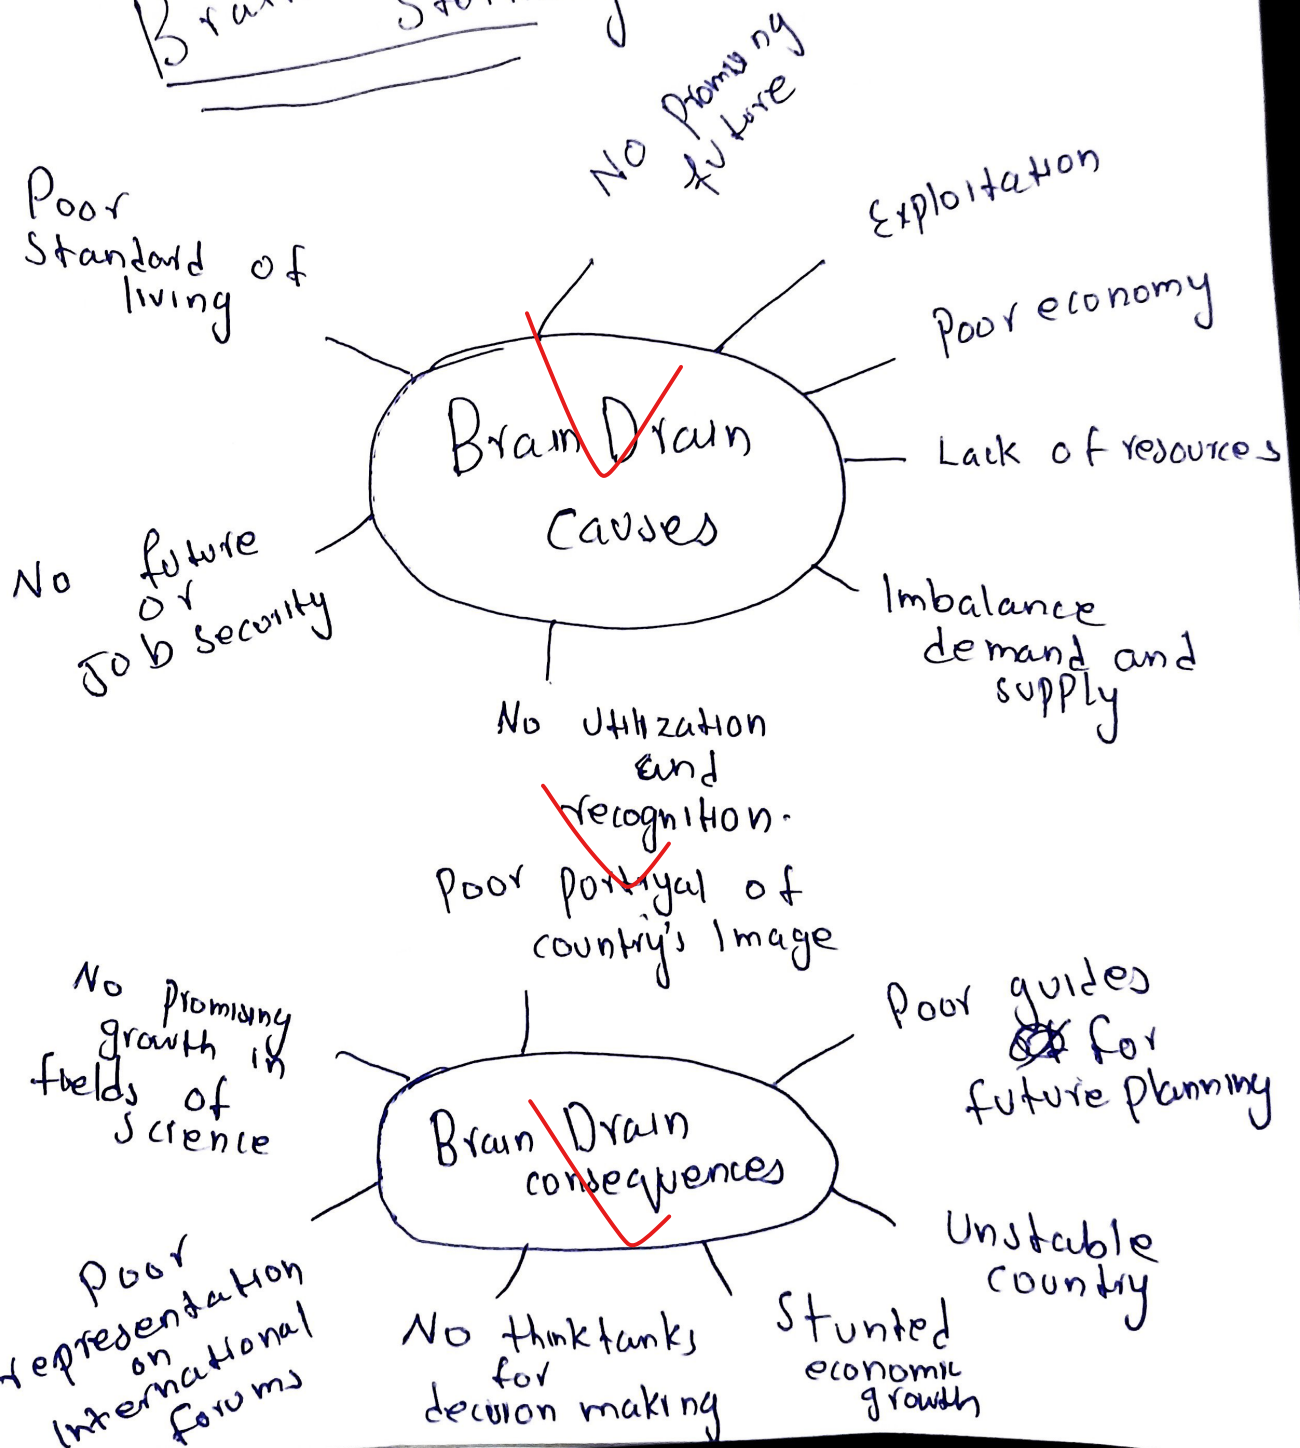 No promising
future
Exploitation
Poor
standard of
living
Poor economy
Brain Drain
causes
Lack of resources
No future
or
Job security
Imbalance
demand and
supply
No utilization
and
recognition.
Poor portryal of
country's Image
No promising
growth in
fields of
science
Poor guides
for
future planning
Brain Drain
consequences
Unstable
country
Poor
representation
on
International
forums
No thinktanks
for
decision making
Stunted
economic
growth